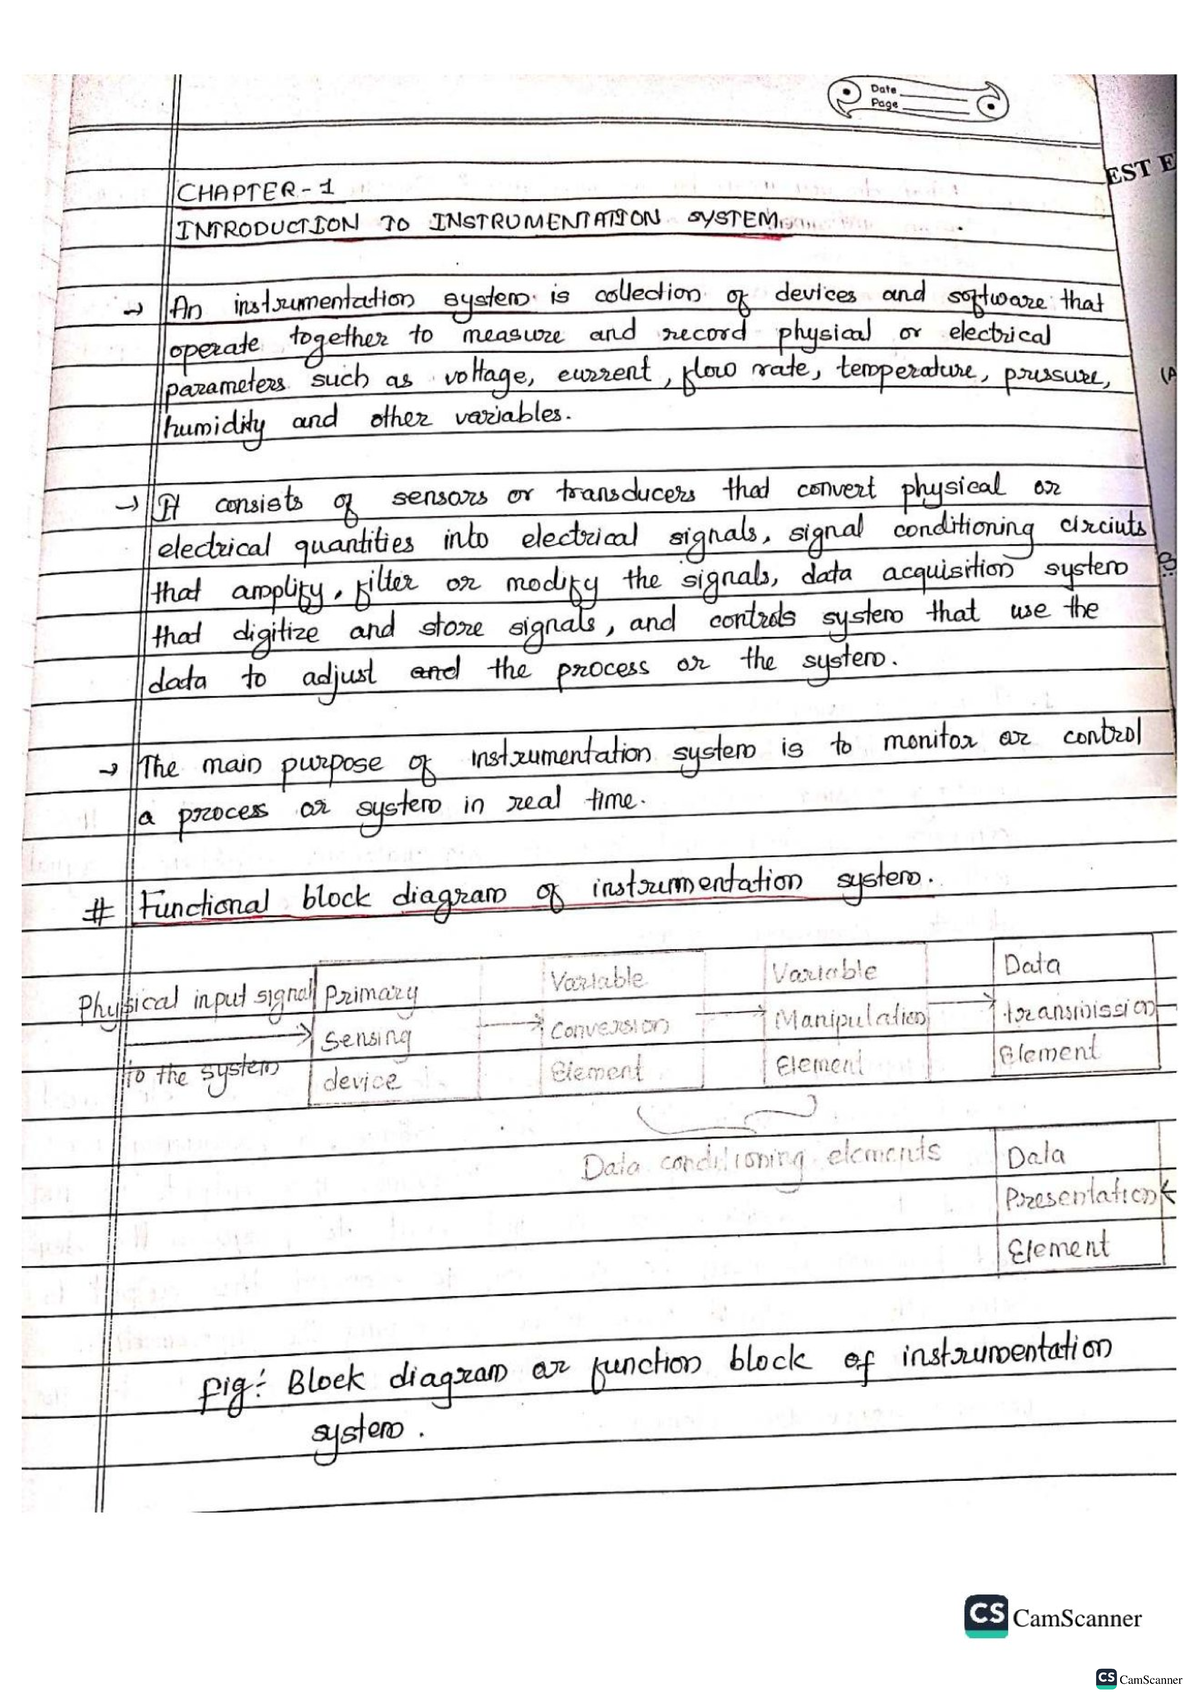 Date
Page
EST E
CHAPTER-1
INTRODUCTION TO INSTRUMENTATION SYSTEM
→ An instrumentation system is collection of devices and software that
operate together to measure and record physical or electrical
parameters such as voltage, current, flow rate, temperature, pressure,
humidity and other variables.
→ It consists of sensors or transducers that convert physical or
electrical quantities into electrical signals, signal conditioning circiuts
that amplify, filter or modify the signals, data acquisition system
that digitize and store signals, and controls system that use the
data to adjust and the process or the system.
→ The main purpose of instrumentation system is to monitor or control
a process or system in real time.
# Functional block diagram of instrumentation system.
Physical input signal
to the system
Primary
Sensing
device
Variable
Conversion
Element
Variable
Manipulation
Element
Data
transmission
Element
Data conditioning elements
Data
Presentation
Element
fig:- Block diagram or function block of instrumentation
system.
CS CamScanner
CS CamScanner